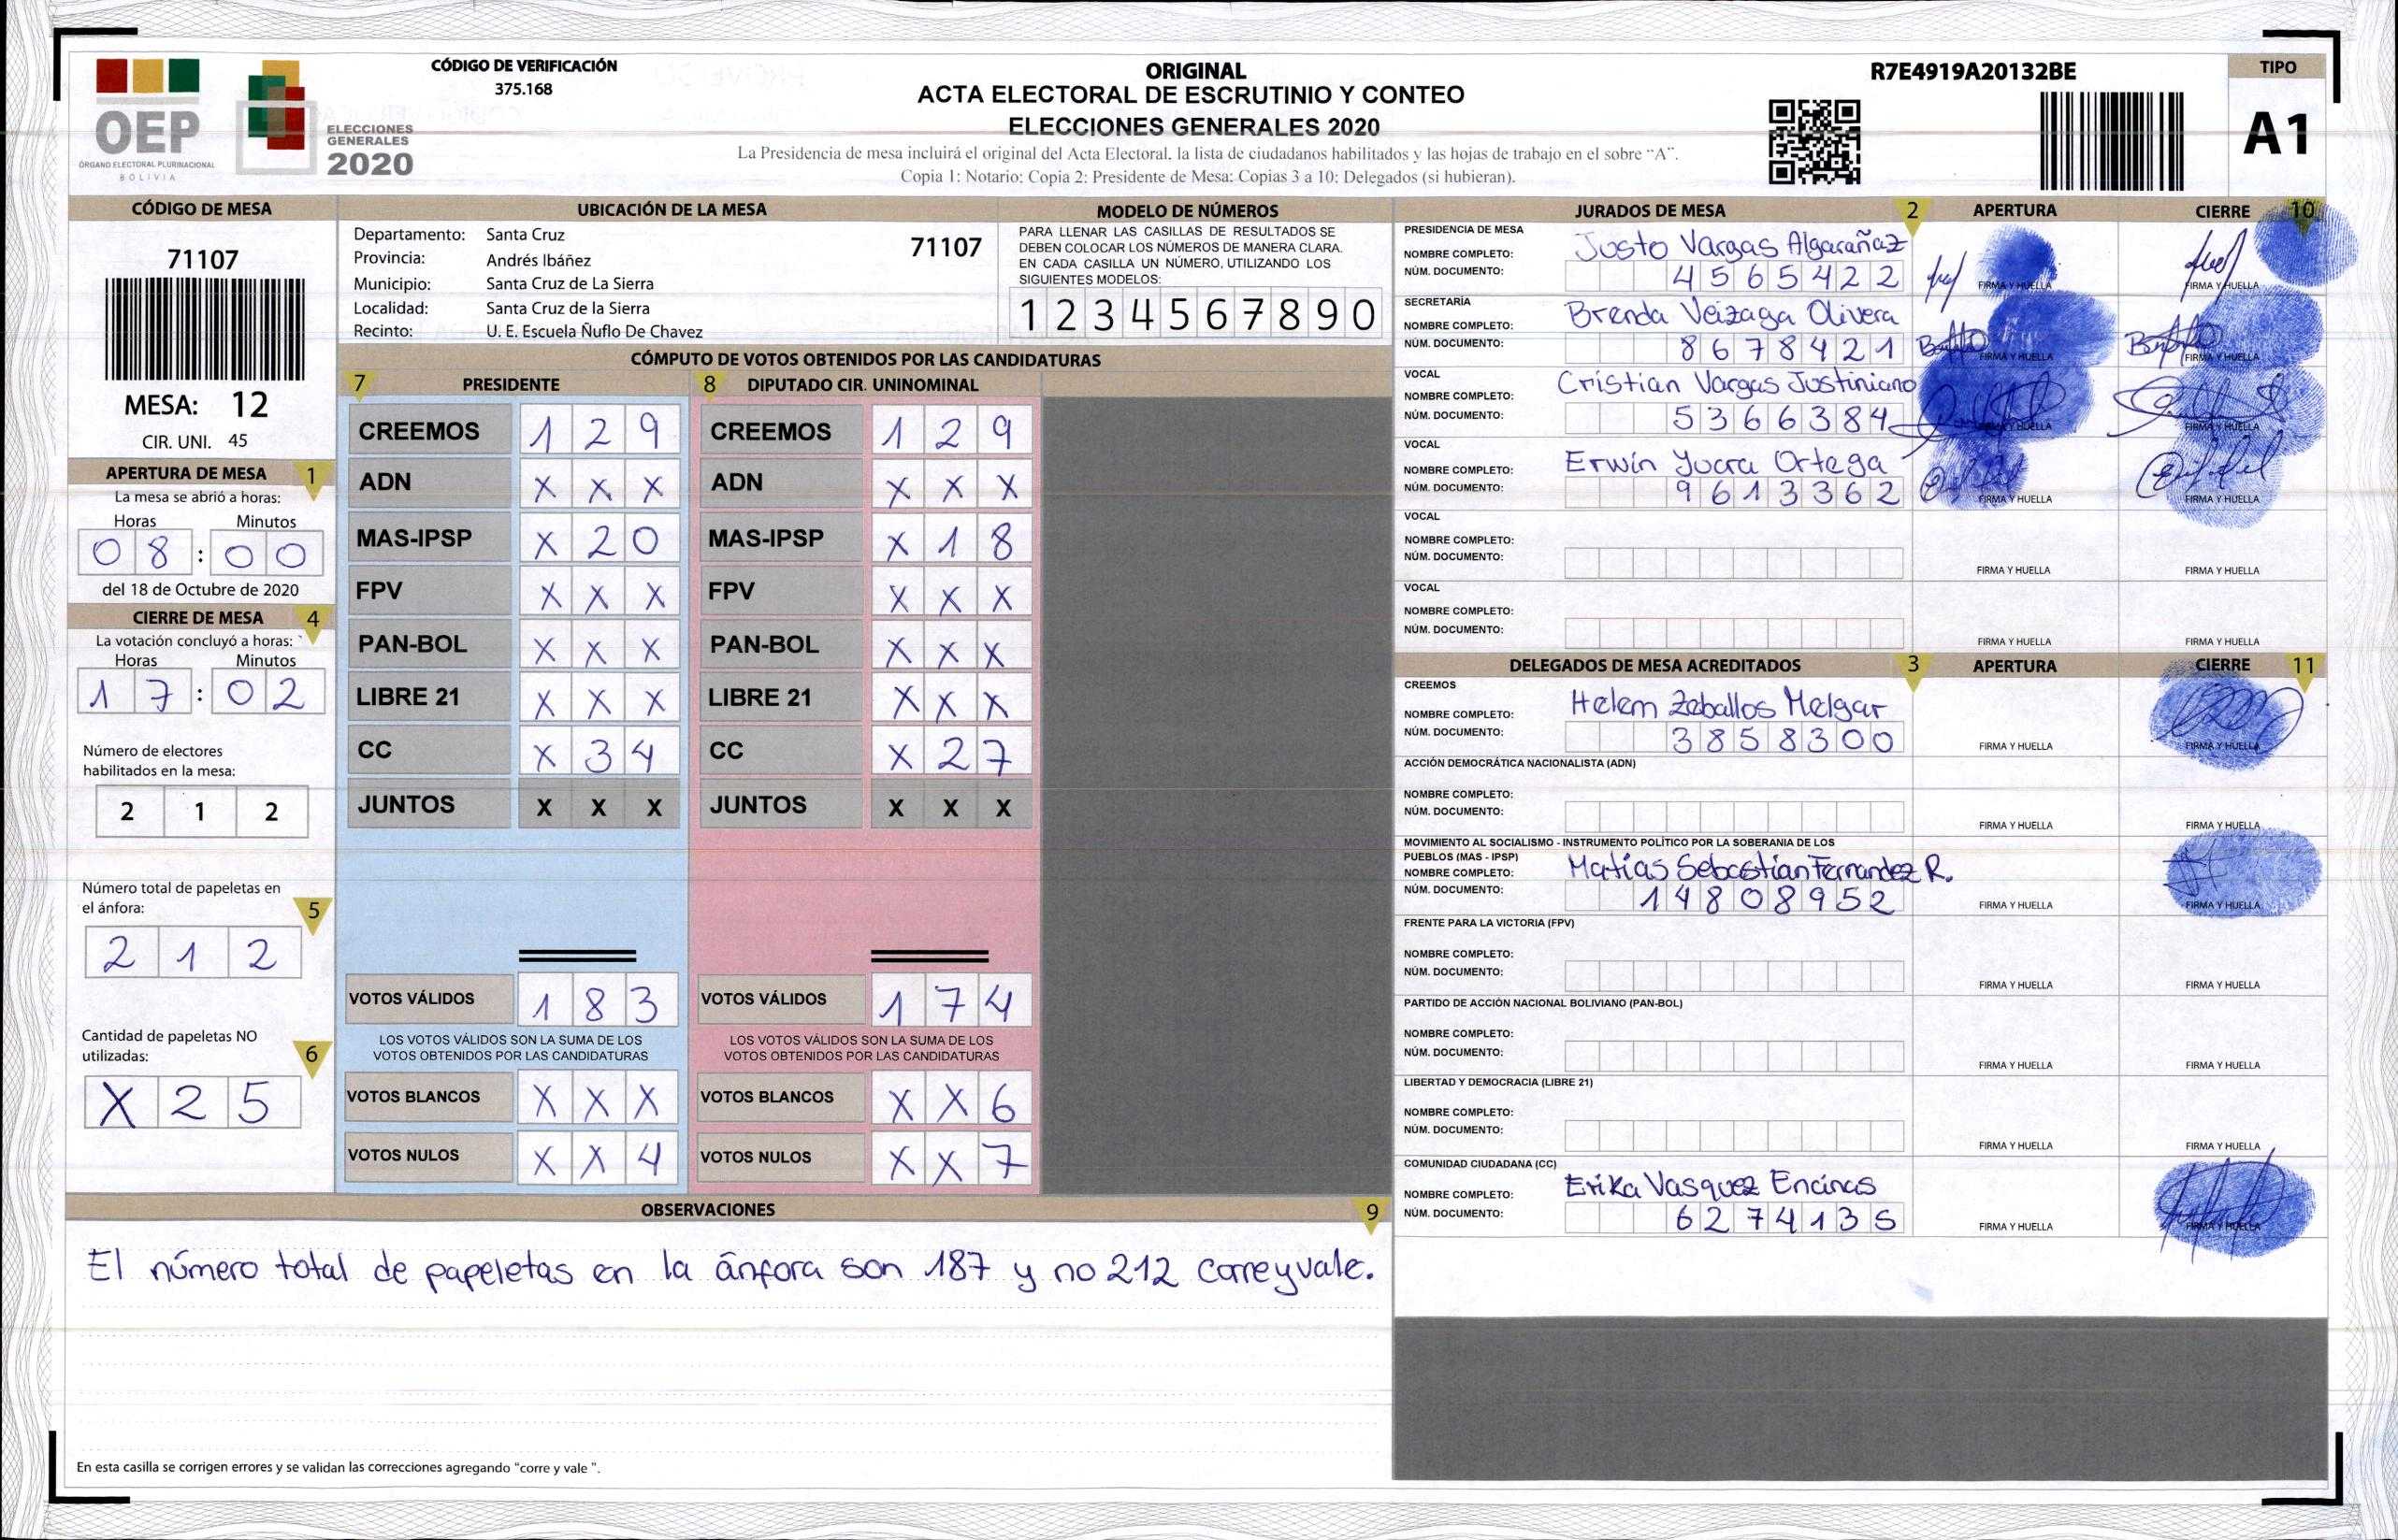 OEP
ÓRGANO ELECTORAL PLURINACIONAL
BOLIVIA
ELECCIONES
GENERALES
2020
CÓDIGO DE VERIFICACIÓN
375.168
ORIGINAL
ACTA ELECTORAL DE ESCRUTINIO Y CONTEO
ELECCIONES GENERALES 2020
La Presidencia de mesa incluirá el original del Acta Electoral, la lista de ciudadanos habilitados y las hojas de trabajo en el sobre “A”.
Copia 1: Notario: Copia 2: Presidente de Mesa: Copias 3 a 10: Delegados (si hubieran).
R7E4919A20132BE
TIPO
A1
CÓDIGO DE MESA
71107
MESA: 12
CIR. UNI. 45
APERTURA DE MESA 1
La mesa se abrió a horas:
Horas Minutos
08:00
del 18 de Octubre de 2020
CIERRE DE MESA 4
La votación concluyó a horas:
Horas Minutos
17:02
Número de electores
habilitados en la mesa:
2 1 2
Número total de papeletas en
el ánfora: 5
2 1 2
Cantidad de papeletas NO
utilizadas: 6
X 2 5
UBICACIÓN DE LA MESA
Departamento: Santa Cruz 71107
Provincia: Andrés Ibáñez
Municipio: Santa Cruz de La Sierra
Localidad: Santa Cruz de la Sierra
Recinto: U. E. Escuela Ñuflo De Chavez
MODELO DE NÚMEROS
PARA LLENAR LAS CASILLAS DE RESULTADOS SE
DEBEN COLOCAR LOS NÚMEROS DE MANERA CLARA.
EN CADA CASILLA UN NÚMERO, UTILIZANDO LOS
SIGUIENTES MODELOS:
1 2 3 4 5 6 7 8 9 0
CÓMPUTO DE VOTOS OBTENIDOS POR LAS CANDIDATURAS
7 PRESIDENTE 8 DIPUTADO CIR. UNINOMINAL
CREEMOS 1 2 9 CREEMOS 1 2 9
ADN X X X ADN X X X
MAS-IPSP X 2 0 MAS-IPSP X 1 8
FPV X X X FPV X X X
PAN-BOL X X X PAN-BOL X X X
LIBRE 21 X X X LIBRE 21 X X X
CC X 3 4 CC X 2 7
JUNTOS X X X JUNTOS X X X
VOTOS VÁLIDOS 1 8 3 VOTOS VÁLIDOS 1 7 4
LOS VOTOS VÁLIDOS SON LA SUMA DE LOS LOS VOTOS VÁLIDOS SON LA SUMA DE LOS
VOTOS OBTENIDOS POR LAS CANDIDATURAS VOTOS OBTENIDOS POR LAS CANDIDATURAS
VOTOS BLANCOS X X X VOTOS BLANCOS X X 6
VOTOS NULOS X X 4 VOTOS NULOS X X 7
OBSERVACIONES 9
El número total de papeletas en la ánfora son 187 y no 212 corre y vale.
En esta casilla se corrigen errores y se validan las correcciones agregando “corre y vale ”.
JURADOS DE MESA 2 APERTURA CIERRE 10
PRESIDENCIA DE MESA
NOMBRE COMPLETO: Justo Vargas Algarañaz
NÚM. DOCUMENTO: 4565422 FIRMA Y HUELLA FIRMA Y HUELLA
SECRETARÍA
NOMBRE COMPLETO: Brenda Veizaga Olivera
NÚM. DOCUMENTO: 8678421 FIRMA Y HUELLA FIRMA Y HUELLA
VOCAL
NOMBRE COMPLETO: Cristian Vargas Justiniano
NÚM. DOCUMENTO: 5366384 FIRMA Y HUELLA FIRMA Y HUELLA
VOCAL
NOMBRE COMPLETO: Erwin Yucra Ortega
NÚM. DOCUMENTO: 9613362 FIRMA Y HUELLA FIRMA Y HUELLA
VOCAL
NOMBRE COMPLETO:
NÚM. DOCUMENTO: FIRMA Y HUELLA FIRMA Y HUELLA
VOCAL
NOMBRE COMPLETO:
NÚM. DOCUMENTO: FIRMA Y HUELLA FIRMA Y HUELLA
DELEGADOS DE MESA ACREDITADOS 3 APERTURA CIERRE 11
CREEMOS
NOMBRE COMPLETO: Helem Zeballos Melgar
NÚM. DOCUMENTO: 3858300 FIRMA Y HUELLA FIRMA Y HUELLA
ACCIÓN DEMOCRÁTICA NACIONALISTA (ADN)
NOMBRE COMPLETO:
NÚM. DOCUMENTO: FIRMA Y HUELLA FIRMA Y HUELLA
MOVIMIENTO AL SOCIALISMO - INSTRUMENTO POLÍTICO POR LA SOBERANIA DE LOS
PUEBLOS (MAS - IPSP)
NOMBRE COMPLETO: Matias Sebastian Fernandez R.
NÚM. DOCUMENTO: 14808952 FIRMA Y HUELLA FIRMA Y HUELLA
FRENTE PARA LA VICTORIA (FPV)
NOMBRE COMPLETO:
NÚM. DOCUMENTO: FIRMA Y HUELLA FIRMA Y HUELLA
PARTIDO DE ACCIÓN NACIONAL BOLIVIANO (PAN-BOL)
NOMBRE COMPLETO:
NÚM. DOCUMENTO: FIRMA Y HUELLA FIRMA Y HUELLA
LIBERTAD Y DEMOCRACIA (LIBRE 21)
NOMBRE COMPLETO:
NÚM. DOCUMENTO: FIRMA Y HUELLA FIRMA Y HUELLA
COMUNIDAD CIUDADANA (CC)
NOMBRE COMPLETO: Erika Vasquez Encinas
NÚM. DOCUMENTO: 6274135 FIRMA Y HUELLA FIRMA Y HUELLA